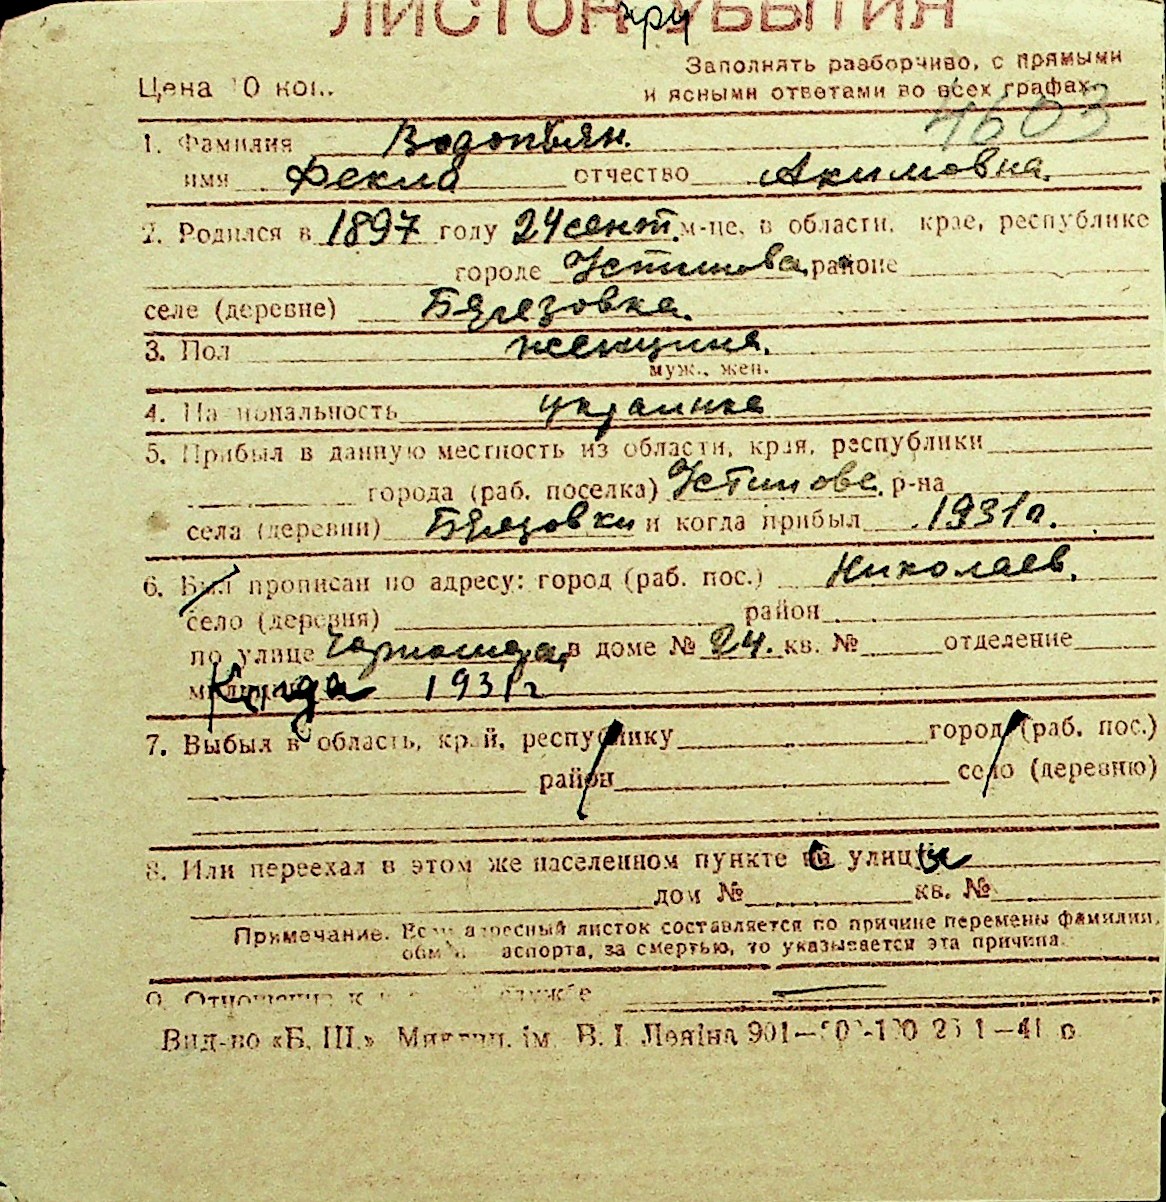 ЛИСТОК УБЫТИЯ
при
Заполнять разборчиво, с прямыми
Цена 10 коп.
и ясными ответами во всех графах.
4603
1. Фамилия Водопьян.
имя Фекла отчество Акимовна.
2. Родился в 1897 году 24 сент. м-це, в области, крае, республике
городе Устинова районе
селе (деревне) Березовка.
3. Пол женщина.
муж., жен.
4. Национальность украинка
5. Прибыл в данную местность из области, края, республики
города (раб. поселка) Устинова р-на
села (деревни) Березовки и когда прибыл 1931 г.
6. Был прописан по адресу: город (раб. пос.) Николаев.
село (деревня) район
по улице в доме № 24. кв. № отделение
1931 г
7. Выбыл в область, край, республику город (раб. пос.)
район село (деревню)
8. Или переехал в этом же населенном пункте улиц
дом № кв. №
Примечание. Если адресный листок составляется по причине перемены фамилии,
обм аспорта, за смертью, то указывается эта причина.
9. Отношение к службе
Вид-во «Б. Ш.» Миколаїв. ім. В. І. Леніна 901—